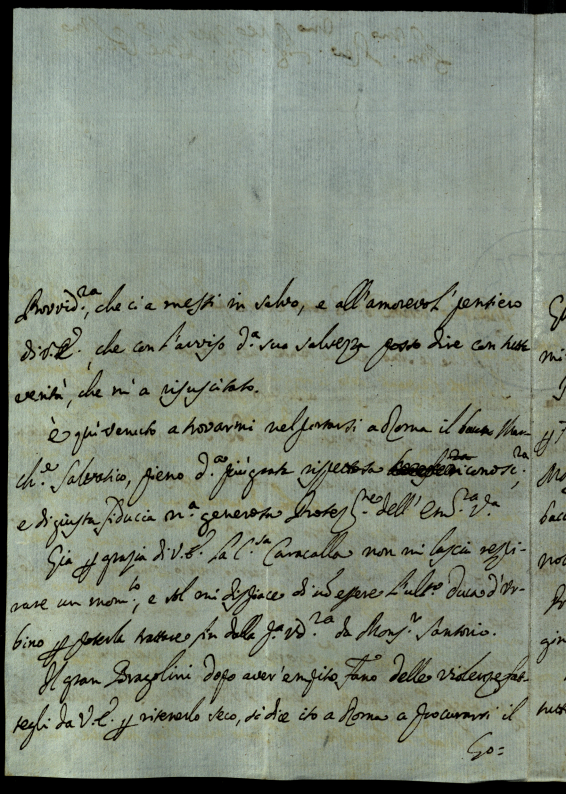 Provvid.za, che ci a messi in salvo, e all'amorevol' pensiero
di V.E., che con l'avviso d.a sua salvezza posso dire con tutta
verità, che m'a risuscitato.
è qui venuto a trovarmi nel portarsi a Roma il buon Mar-
ch.e Salvatico, pieno d.a più grata rispettosa riconosc.za,
e di giusta fiducia n.a generosa Protez.ne dell' Em.za V.a
Già p grazia di V.E. la C.sa Caracalla non mi lascia respi-
rare un mom.to, e sol mi dispiace di ñ essere l'ult.o Duca d'Ur-
bino p poterla trattare da Mons.r Santorio.
Il gran Bragolini dopo aver' empito Fano delle violenze fat-
tegli da V.E. p ritenerlo seco, si dice ito a Roma a procurarsi il
Go=